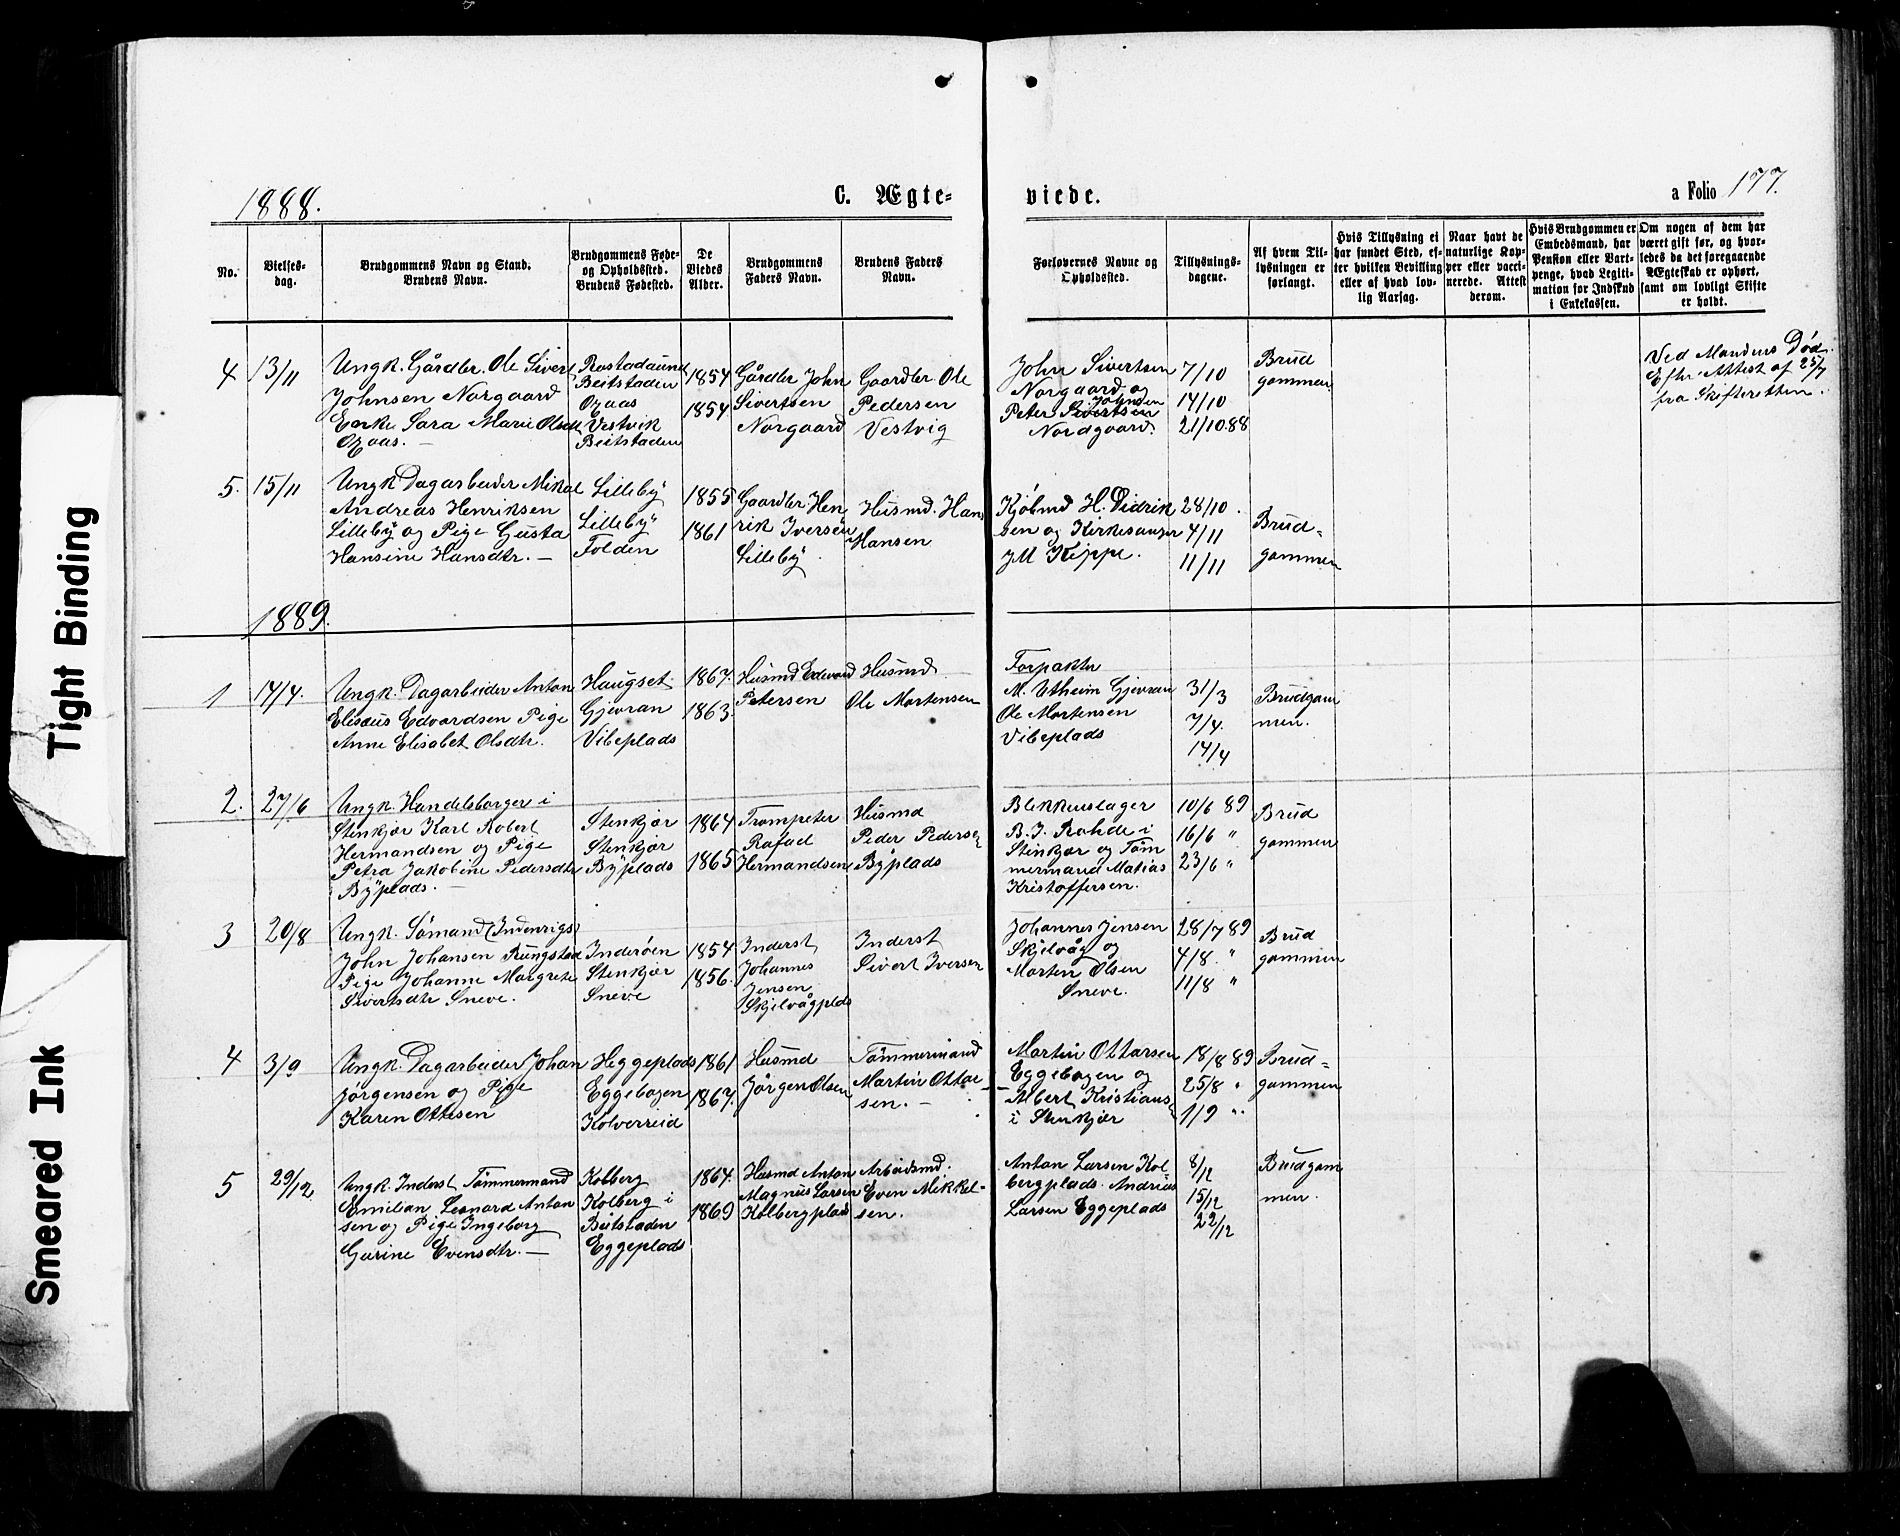 Tight Binding
Smeared Ink
1888.
C. Ægte-
viede.
a Folio 177.
No.
Vielses-
dag.
Brudgommens Navn og Stand.
Brudens Navn.
Brudgommens Føde-
og Opholdssted.
Brudens Fødested.
De
Viedes
Alder.
Brudgommens
Faders Navn.
Brudens Faders
Navn.
Forlovernes Navne og
Opholdssted.
Tillysnings-
dagene.
Af hvem Til-
lysningen er
forlangt.
Hvis Tillysning ei
har fundet Sted, ef-
ter hvilken Bevilling
eller af hvad lov-
lig Aarsag.
Naar havt de
naturlige Kop-
per eller vacci-
nerede. Attest
derom.
Hvis Brudgommen er
Embedsmand, har
Pension eller Vart-
penge, hvad Legiti-
mation for Indskud
i Enkekassen.
Om nogen af dem har
været gift før, og hvor-
ledes da det foregaaende
Ægteskab er ophørt,
samt om lovligt Skifte
er holdt.
4
13/11
Ungk. Gårdbr. Ole Sivert
Johnsen Norgaard
Enke Sara Marie Olsdtr
Opaas. —
Rostadaunet
Beitstaden
Opaas
Vestvik
Beitstaden
1854
1854
Gårdbr John
Sivertsen
Norgaard
Gaardbr. Ole
Pedersen
Vestvig
John Sivertsen
Norgaard og
Johnsen
Peter Sivertsen
Nordgaard.
7/10
14/10
21/10 88
Brud
gommen
Ved Mandens Død.
Efter Attest af 25/7
fra Skifteretten.
5.
15/11
Ungk Dagarbeider Mikal
Andreas Henriksen
Lilleby og Pige Gusta
Hansine Hansdtr. —
Lilleby
Lilleby
Folden
1855
1861
Gaardbr. Hen
rik Iversen
Lilleby
Husmd. Hans
Hansen
Kjøbmd H. Didrik
sen og Kirkesanger
J M Kippe.
28/10.
4/11
11/11
Brud-
gommen
1889.
1
14/4.
Ungk. Dagarbeider Anton
Eliseus Edvardsen Pige
Anne Elisabet Olsdtr.
Haugset
Gjevran
Vibeplads
1867.
1863.
Husmd Edvard
Petersen
Husmd
Ole Mortensen
Forpakter
M. Utheim Gjevran
Ole Mortensen
Vibeplads
31/3
7/4.
14/4
Brudgom
men.
2.
27/6
Ungk. Handelsborger i
Stenkjær Karl Robert
Hermandsen og Pige
Petra Jakobine Pedersdtr
Byplads. —
Stenkjær
Stenkjær
Byplads
1864
1865
Trompeter
Rafael
Hermandsen
Husmd
Peder Pedersen
Byplads
Blikkenslager
B. J. Rohde i
Stenkjær og Tøm
mermand Matias
Kristoffersen.
10/6 89
16/6 "
23/6 "
Brud
gommen
3
20/8
Ungk. Sømand (Indenrigs)
John Johansen Rungstad
Pige Johanne Margrete
Sivertsdtr Sneve.
Inderøen
Stenkjær
Sneve
1854
1856.
Inderst
Johannes
Jensen
Skjelvågplds
Inderst
Sivert Iversen
Johannes Jensen
Skjelvåg og
Morten Olsen
Sneve.
28/7 89
4/8. "
11/8 "
Brud
gommen
4
3/9
Ungk. Dagarbeider Johan
Jørgensen og Pige
Karen Ottesen
Heggeplads
Eggebogen
Kolvereid
1861
1867.
Husmd
Jørgen Olsen
Tømmermand
Martin Ottar-
sen. —
Martin Ottarsen
Eggebogen og
Albert Kristians
i Stenkjær
18/8 89
25/8 "
1/9 "
Brud-
gommen
5
29/12.
Ungk. Inderst Tømmermand
Emilian Leonard Anton
sen og Pige Ingeborg
Gurine Evensdtr. —
Kolberg
Kolberg i
Beitstaden
Eggeplads
1864.
1869
Husmd Anton
Magnus Larsen
Kolbergplads
Arbeidsmd.
Even Mikkel-
sen.
Anton Larsen Kol-
bergplads. Andreas
Larsen Eggeplads
8/12
15/12
22/12
Brudgom
men.